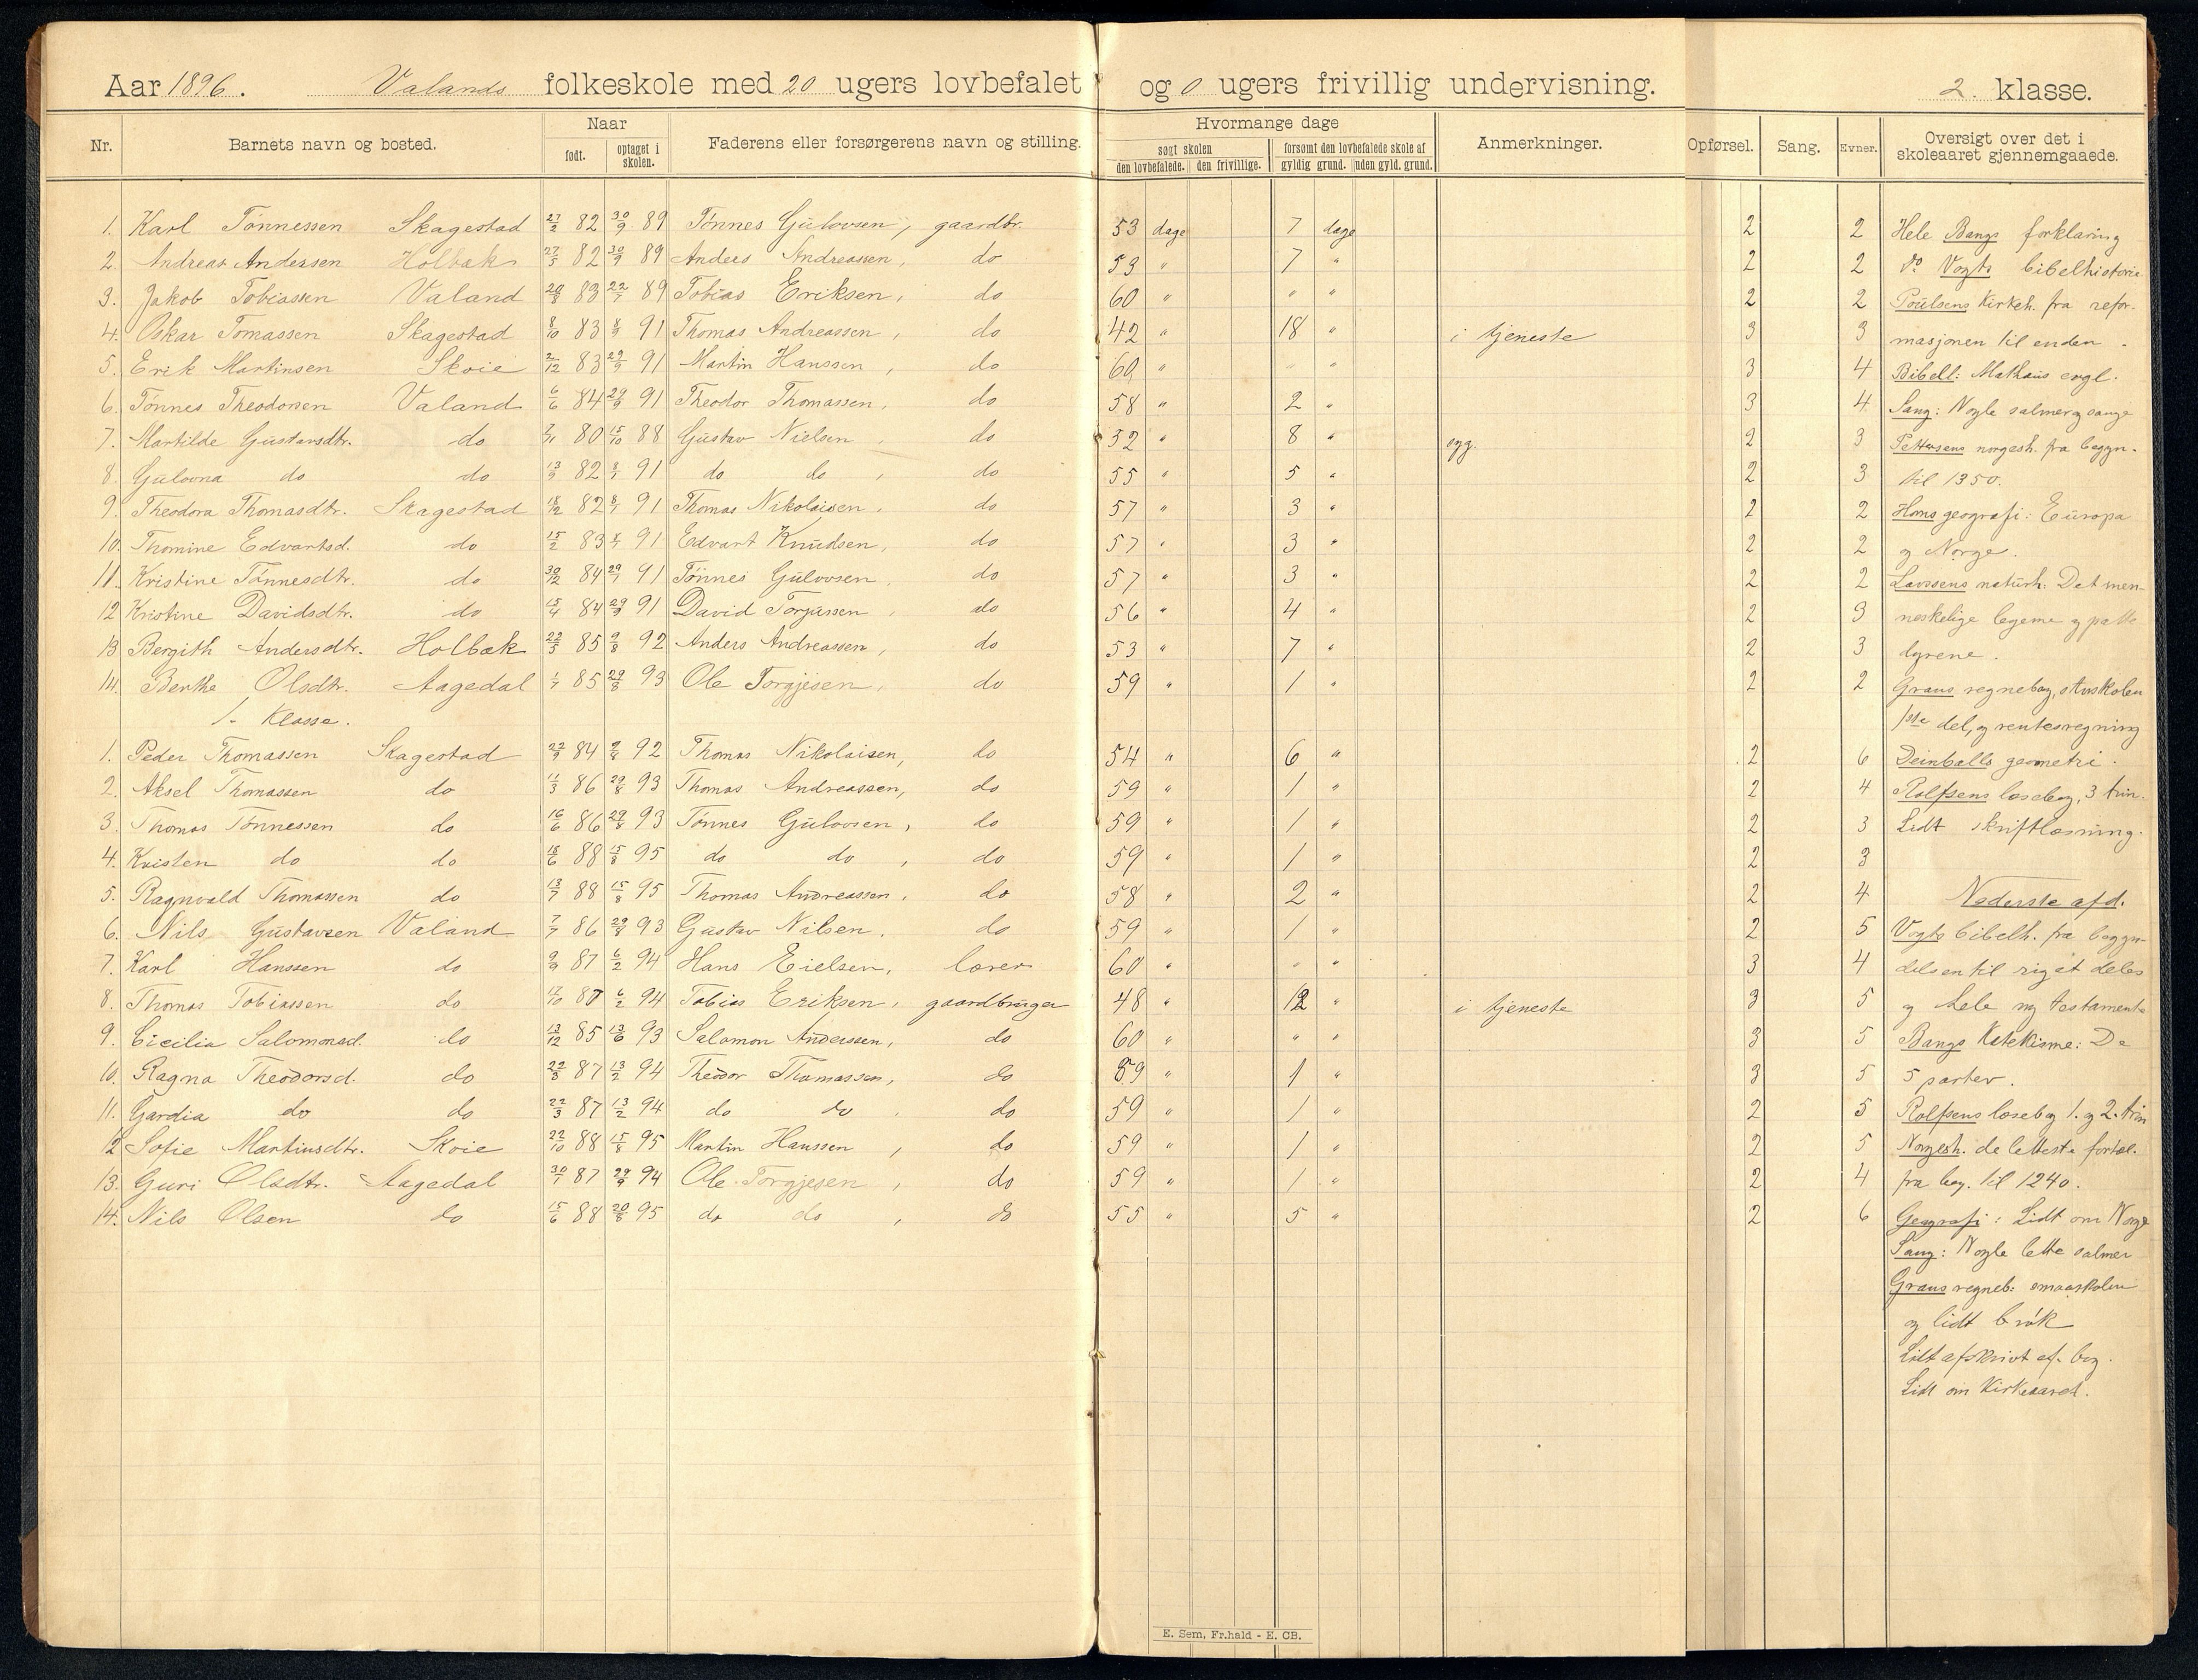 Aar 1896. Valands folkeskole med 20 ugers lovbefalet og 0 ugers frivillig undervisning. 2. klasse.
Nr. Barnets navn og bosted. Naar født. optaget i skolen. Faderens eller forsørgerens navn og stilling. Hvormange dage søgt skolen den lovbefalede. den frivillige. forsømt den lovbefalede skole af gyldig grund. uden gyld. grund. Anmerkninger. Opførsel. Sang. Evner. Oversigt over det i skoleaaret gjennemgaaede.
1. Karl Tønnessen Skagestad 27/2 82 30/9 89 Tønnes Gulovsen, gaardbr. 53 dage 7 dage 2 2 Hele Bangs forklaring
2. Andreas Andersen Holbæk 27/5 82 30/9 89 Anders Andreassen, do 53 " 7 " 2 2 do Vogts bibelhistorie
3. Jakob Tobiassen Valand 20/8 83 22/7 89 Tobias Eriksen, do 60 " " " 2 2 Poulsens Kirkeh. fra refor-
4. Oskar Tomassen Skagestad 8/10 83 8/9 91 Thomas Andreassen, do 42 " 18 " i tjeneste 3 3 masjonen til enden.
5. Erik Martinsen Skoie 2/12 83 29/9 91 Martin Hanssen, do 60 " " " 3 4 Bibell: Mathæus evgl.
6. Tønnes Theodorsen Valand 6/6 84 29/9 91 Theodor Thomassen, do 58 " 2 " 3 4 Sang: Nogle salmer og sange
7. Martilde Gustavsdtr. do 2/11 80 15/10 88 Gustav Nielsen, do 32 " 8 " syg. 2 3 Pettersens norgesh. fra begyn-
8. Gulovna do do 13/9 82 8/7 91 do do, do 55 " 5 " 2 3 til 1350.
9. Theodora Thomasdtr. Skagestad 18/12 82 8/7 91 Thomas Nikolaisen, do 57 " 3 " 2 2 Horns geografi: Europa
10. Thomine Edvartsd. do 15/2 83 8/7 91 Edvart Knudsen, do 57 " 3 " 2 2 og Norge.
11. Kristine Tønnesdtr. do 30/12 84 29/7 91 Tønnes Gulovsen, do 57 " 3 " 2 2 Lavssens naturh: Det men-
12 Kristine Davidsdtr. do 15/4 84 29/9 91 David Torjussen, do 56 " 4 " 2 3 neskelige legeme og patte
13 Bergith Andersdtr. Holbæk 22/5 85 9/8 92 Anders Andreassen, do 53 " 7 " 2 3 dyrene.
14. Berthe Olsdtr. Aagedal 1/7 85 29/8 93 Ole Torgjesen, do 59 " 1 " 2 2 Graus regnebog, storskolen
1. Klasse. 1ste del, og rentesregning
1. Peder Thomassen Skagestad 22/9 84 9/8 92 Thomas Nikolaisen, do 54 " 6 " 2 6 Deinbolls geometri.
2. Aksel Thomassen do 11/3 86 29/8 93 Thomas Andreassen, do 59 " 1 " 2 4 Rolfsens læsebog, 3 trin.
3. Thomas Tønnessen do 16/6 86 29/8 93 Tønnes Gulovsen, do 59 " 1 " 2 3 Lidt skriftlæsning.
4. Kristen do do 18/6 88 15/8 95 do do, do 59 " 1 " 2 3
5. Ragnvald Thomassen do 13/7 88 15/8 95 Thomas Andreassen, do 58 " 2 " 2 4 Nederste afd.
6. Nils Gustavsen Valand 7/7 86 29/8 93 Gustav Nilsen, do 59 " 1 " 2 5 Vogts bibelh. fra begyn-
7. Karl Hanssen do 9/9 87 6/2 94 Hans Eielsen, lærer 60 " " " 3 4 delsen til riget deles
8. Thomas Tobiassen do 17/10 87 6/2 94 Tobias Eriksen, gaardbruger 48 " 12 " i tjeneste 3 5 og hele ny testamente
9. Cicilia Salomonsd. do 13/12 85 13/6 93 Salomon Anderssen, do 60 " " " 3 5 Bangs Katekisme: De
10. Ragna Theodorsd. do 22/3 87 13/2 94 Theodor Thomassen, do 59 " 1 " 3 5 5 parter.
11. Gardia do do 22/3 87 13/2 94 do do, do 59 " 1 " 2 5 Rolfsens læsebog 1. og 2. trin
12 Sofie Martinsdtr. Skoie 22/10 88 15/8 95 Martin Hanssen, do 59 " 1 " 2 5 Norgesh. de letteste fortæl.
13. Guri Olsdtr. Aagedal 30/7 87 29/9 94 Ole Torgjesen, do 59 " 1 " 2 4 fra beg. til 1240.
14. Nils Olsen do 15/6 88 20/8 95 do do, do 55 " 5 " 2 6 Geografi: Lidt om Norge
Sang: Nogle lette salmer
Graus regneb: smaaskolen
og lidt brøk
Lidt afskrivt af bog.
Lidt om Kirkeaaret.
E. Sem, Fr.hald - E. CB.